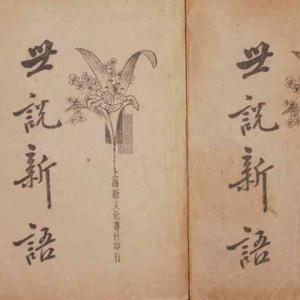 世說新語
上海新文化書社印行
世說新語